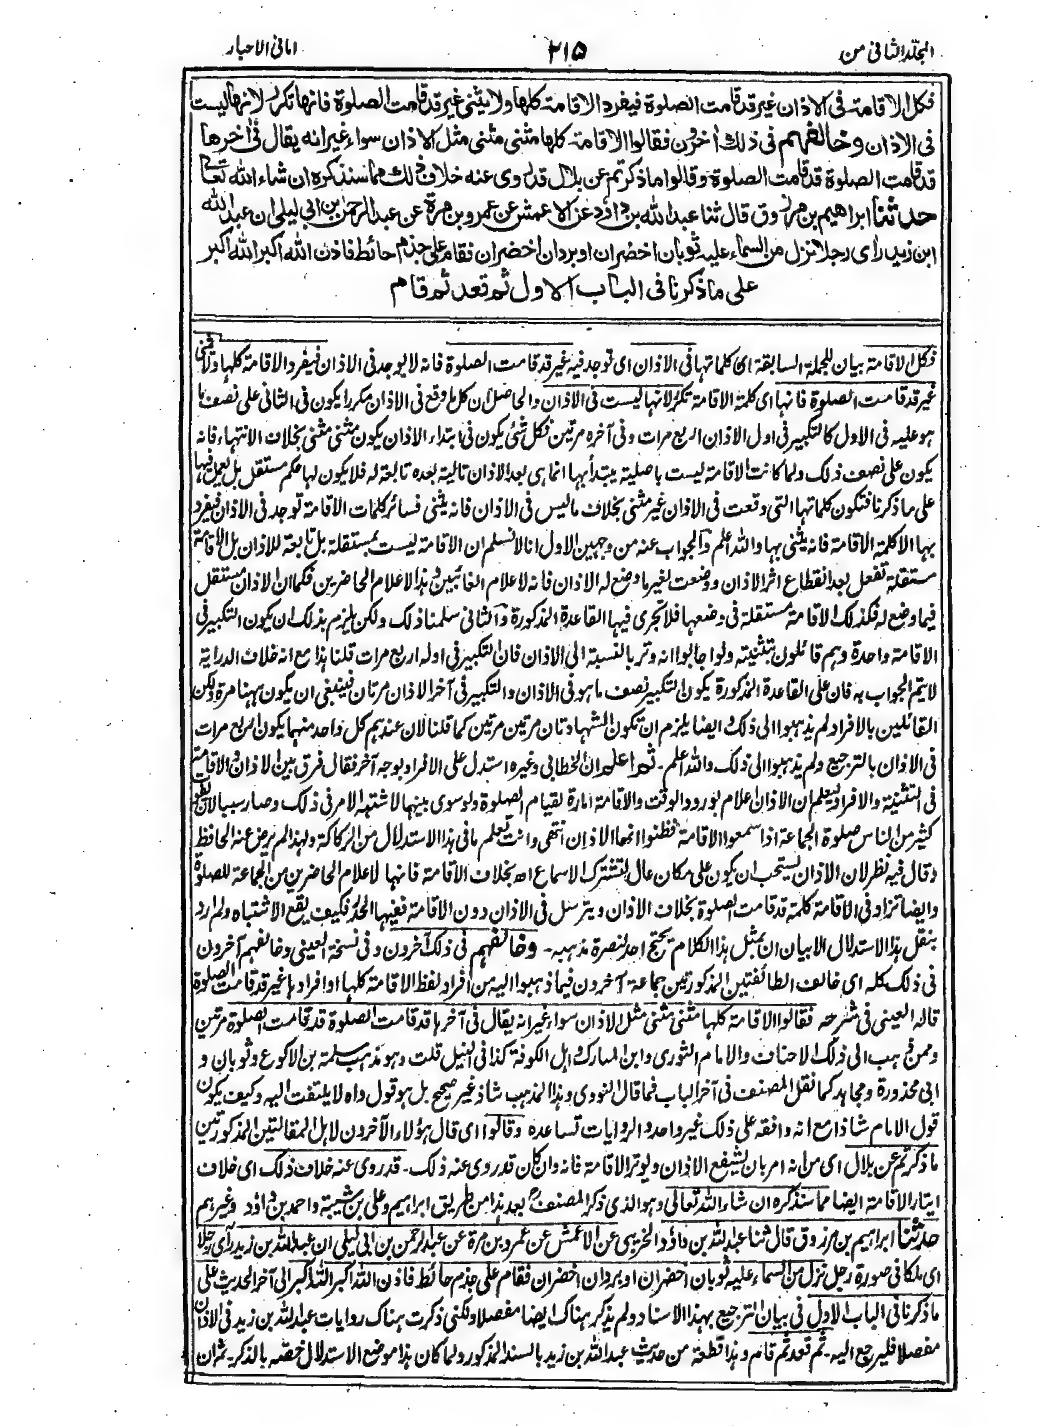 المجلد الثانی من ۲۱۵ امانی الاحبار
فکل الاقامة فی الاذان غیر قد قامت الصلوة فیفرد الاقامة کلها ولا یثنی غیر قد قامت الصلوة فانها تکرر لانها لیست
فی الاذان وخالفهم فی ذلك اٰخرون فقالوا الاقامة کلها مثنی مثنی مثل الاذان سواء غیر انه یقال فی اٰخرها
قد قامت الصلوة قد قامت الصلوة وقالوا ما ذکرتم عن بلال قد روی عنه خلاف ذلك مما سنذکره ان شاء الله تعالٰی
حدثنا ابراهیم بن مرزوق قال ثنا عبد الله بن داؤد عن الاعمش عن عمرو بن مرة عن عبد الرحمٰن بن ابی لیلی ان عبد الله
ابن زید رأی رجلا نزل من السماء علیه ثوبان اخضران او بردان اخضران فقام علی جذم حائط فاذن الله اکبر الله اکبر
علی ما ذکرنا فی الباب الاول ثم قعد ثم قام
فکل الاقامة بیان للجملة السابقة ای کلماتها فی الاذان ای توجد فیه غیر قد قامت الصلوة فانه لا یوجد فی الاذان فیفرد الاقامة کلها ولا یثنی
غیر قد قامت الصلوة فانها ای کلمة الاقامة تکرر لانها لیست فی الاذان والحاصل ان کل ما وقع فی الاذان مکررا یکون فی الثانی علی نصف ما
هو علیه فی الاول کالتکبیر فی اول الاذان اربع مرات وفی آخره مرتین فکل شئ یکون فی ابتداء الاذان یکون مثنی مثنی بخلاف الانتهاء فانه
یکون علی نصف ذلک ولما کانت الاقامة لیست باصلیة یبتدأ بها انما هی بعد الاذان تالیة بعده تابعة له فلا یکون لها حکم مستقل بل یعمل فیها
علی ما ذکرنا فتکون کلماتها التی وقعت فی الاذان غیر مثنی بخلاف ما لیس فی الاذان فانه یثنی فسائر کلمات الاقامة توجد فی الاذان فیفرد
بها الا کلمة الاقامة فانه یثنی بها والله اعلم والجواب عنه من وجهین الاول انا لا نسلم ان الاقامة لیست بمستقلة بل تابعة للاذان بل الاقامة
مستقلة تفعل بعد انقطاع اثر الاذان ووضعت لغیر ما وضع له الاذان فانه لاعلام الغائبین وهذا الاعلام الحاضرین فکما ان الاذان مستقل
فیما وضع له فکذلک الاقامة مستقلة فی وضعها فلا تجری فیها القاعدة المذکورة والثانی سلمنا ذلک ولکن یلزم بذلک ان یکون التکبیر فی
الاقامة واحدة وهم قائلون بتثنیته ولو اجابوا انه وتر بالنسبة الی الاذان فان التکبیر فی اوله اربع مرات قلنا هذا مع انه خلاف الدرایة
لا یتم الجواب به فان علی القاعدة المذکورة یکون التکبیر نصف ما هو فی الاذان والتکبیر فی آخر الاذان مرتان فینبغی ان یکون ههنا مرة ولکن
القائلین بالافراد لم یذهبوا الی ذلک وایضا یلزم ان تکون الشهادتان مرتین مرتین کما قلنا لان عندهم کل واحد منهما یکون اربع مرات
فی الاذان بالترجیع ولم یذهبوا الی ذلک والله اعلم۔ ثم اعلم ان الخطابی وغیره استدل علی الافراد بوجه آخر فقال فرق بین الاذان والاقامة
فی التثنیة والافراد لیعلم ان الاذان اعلام بورود الوقت والاقامة امارة لقیام الصلوة ولو سوی بینهما لاشتبه الامر فی ذلک وصار سببا لان
کثیر من الناس صلوة الجماعة اذا سمعوا الاقامة فظنوا انها الاذان انتهی وانت تعلم ما فی هذا الاستدلال من الرکاکة ولهذا لم یرض عنه الحافظ
وقال فیه نظر لان الاذان یستحب ان یکون علی مکان عال لتشترک الاسماع اھ بخلاف الاقامة فانها لاعلام الحاضرین من الجماعة للصلوة
وایضا تزاد فی الاقامة کلمة قد قامت الصلوة بخلاف الاذان ویترسل فی الاذان دون الاقامة ففیها الحدر فکیف یقع الاشتباه ولم ارد
بنقل هذا الاستدلال الا بیان ان بمثل هذا الکلام یحتج احد لنصرة مذهبه۔ وخالفهم فی ذلک آخرون وفی نسخة العینی وخالفهم آخرون
فی ذلک کله ای خالف الطائفتین المذکورتین جماعة آخرون فیما ذهبوا الیه من افراد لفظ الاقامة کلها او افرادها غیر قد قامت الصلوة
قاله العینی فی شرحه فقالوا الاقامة کلها مثنی مثنی مثل الاذان سواء غیر انه یقال فی آخرها قد قامت الصلوة قد قامت الصلوة مرتین
وممن ذهب الی ذلک الاحناف والامام الثوری وابن المبارک واهل الکوفة کذا فی النیل قلت وهو مذهب سلمة بن الاکوع وثوبان و
ابی محذورة ومجاهد کما نقل المصنف فی آخر الباب فما قال النووی وهذا المذهب شاذ غیر صحیح بل هو قول واه لا یلتفت الیه وکیف یکون
قول الامام شاذا مع انه وافقه علی ذلک غیر واحد والروایات تساعده وقالوا ای قال هؤلاء الآخرون لاهل المقالتین المذکورتین
ما ذکرتم عن بلال ای من انه امر بان یشفع الاذان ویوتر الاقامة فانه وان کان قد روی عنه ذلک۔ قد روی عنه خلاف ذلک ای خلاف
ایتار الاقامة ایضا مما سنذکره ان شاء الله تعالٰی وهو الذی ذکر المصنف بعد هذا من طریق ابراهیم وعلی بن شیبة واحمد بن داؤد وغیرهم
حدثنا ابراهیم بن مرزوق قال ثنا عبد الله بن داؤد الخریبی عن الاعمش عن عمرو بن مرة عن عبد الرحمن بن ابی لیلی ان عبد الله بن زید رأی رجلا
ای ملکا فی صورة رجل نزل من السماء علیه ثوبان اخضران او بردان اخضران فقام علی جذم حائط فاذن الله اکبر الله اکبر الی آخر الحدیث علی
ما ذکرنا فی الباب الاول فی بیان الترجیع بهذا الاسناد ولم یذکر هناک ایضا مفصلا ولکنی ذکرت هناک روایات عبد الله بن زید فی الاذان
مفصلا فلیرجع الیه۔ ثم قعد ثم قام وهذا قطعة من حدیث عبد الله بن زید بالسند المذکور ولما کان هذا موضع الاستدلال خصه بالذکر۔ ثم ان